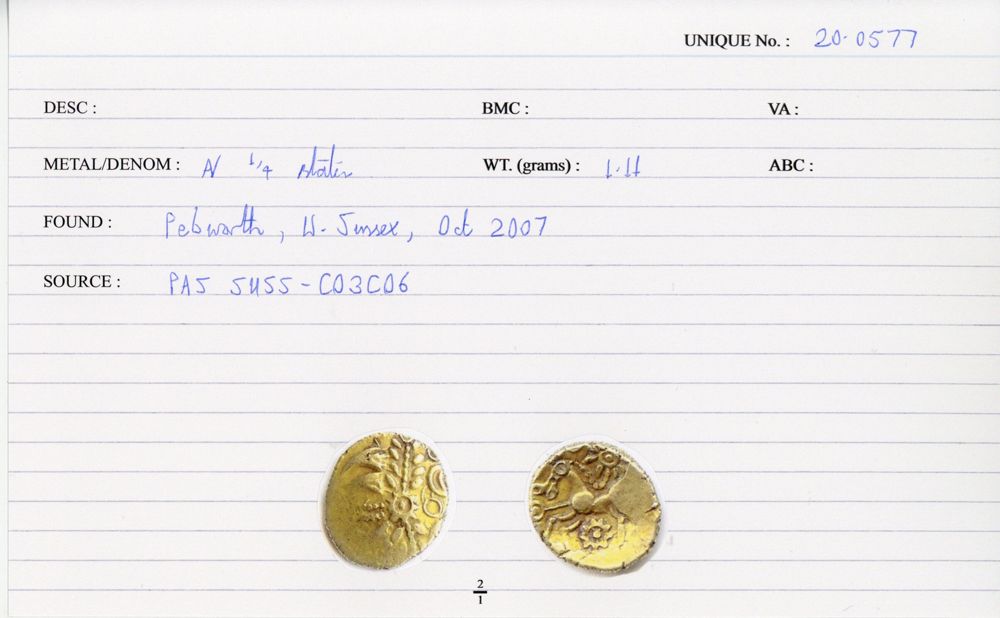 UNIQUE No. : 20-0577
DESC : BMC : VA :
METAL/DENOM : N 1/4 stater WT. (grams) : 1.11 ABC :
FOUND : Pebworth, W. Sussex, Oct 2007
SOURCE : PAS SUSS-C03C06
2/1